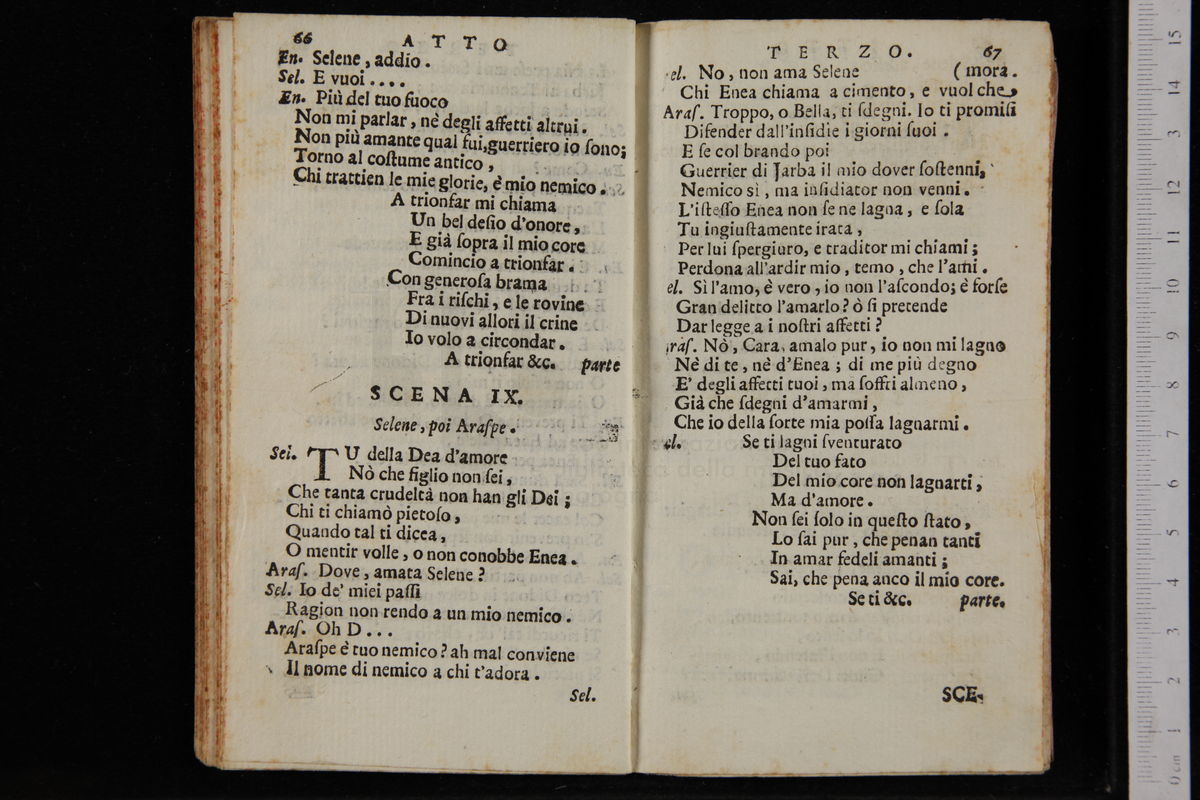 66 ATTO
En. Selene, addio.
Sel. E vuoi....
En. Più del tuo fuoco
Non mi parlar, nè degli affetti altrui.
Non più amante qual fui, guerriero io ſono;
Torno al coſtume antico,
Chi trattien le mie glorie, è mio nemico.
A trionfar mi chiama
Un bel deſio d'onore,
E già ſopra il mio core
Comincio a trionfar.
Con generoſa brama
Fra i riſchi, e le rovine
Di nuovi allori il crine
Io volo a circondar.
A trionfar &c. parte
SCENA IX.
Selene, poi Araſpe.
Sel. TU della Dea d'amore
Nò che figlio non ſei,
Che tanta crudeltà non han gli Dei;
Chi ti chiamò pietoſo,
Quando tal ti dicea,
O mentir volle, o non conobbe Enea.
Araſ. Dove, amata Selene?
Sel. Io de' miei paſſi
Ragion non rendo a un mio nemico.
Araſ. Oh D...
Araſpe è tuo nemico? ah mal conviene
Il nome di nemico a chi t'adora.
Sel.
TERZO. 67
el. No, non ama Selene (mora.
Chi Enea chiama a cimento, e vuol che
Araſ. Troppo, o Bella, ti ſdegni. Io ti promiſi
Difender dall'inſidie i giorni ſuoi.
E ſe col brando poi
Guerrier di Jarba il mio dover ſoſtenni,
Nemico sì, ma inſidiator non venni.
L'iſteſſo Enea non ſe ne lagna, e ſola
Tu ingiuſtamente irata,
Per lui ſpergiuro, e traditor mi chiami;
Perdona all'ardir mio, temo, che l'ami.
el. Sì l'amo, è vero, io non l'aſcondo; è forſe
Gran delitto l'amarlo? ò ſi pretende
Dar legge a i noſtri affetti?
raſ. Nò, Cara, amalo pur, io non mi lagno
Nè di te, nè d'Enea; di me più degno
E' degli affetti tuoi, ma ſoffri almeno,
Già che ſdegni d'amarmi,
Che io della ſorte mia poſſa lagnarmi.
el. Se ti lagni ſventurato
Del tuo fato
Del mio core non lagnarti,
Ma d'amore.
Non ſei ſolo in queſto ſtato,
Lo ſai pur, che penan tanti
In amar fedeli amanti;
Sai, che pena anco il mio core.
Se ti &c. parte.
SCE-